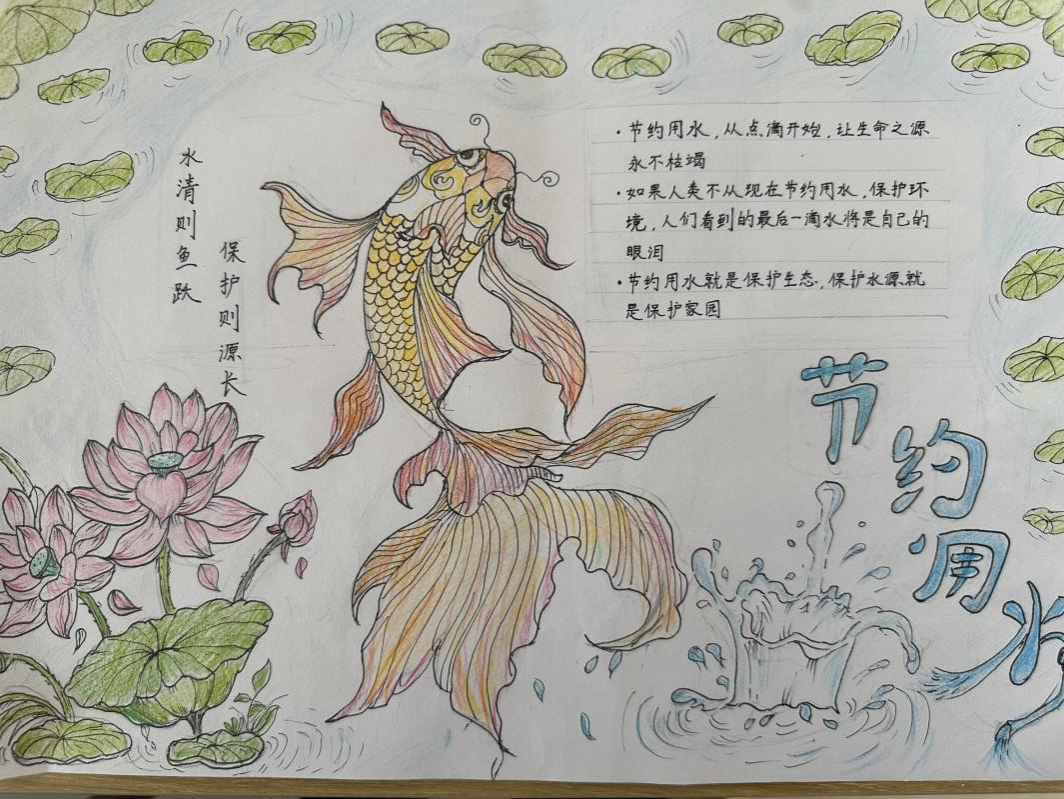 水清则鱼跃
保护则源长
·节约用水，从点滴开始，让生命之源
永不枯竭
·如果人类不从现在节约用水，保护环
境，人们看到的最后一滴水将是自己的
眼泪
·节约用水就是保护生态，保护水源就
是保护家园
节约用水